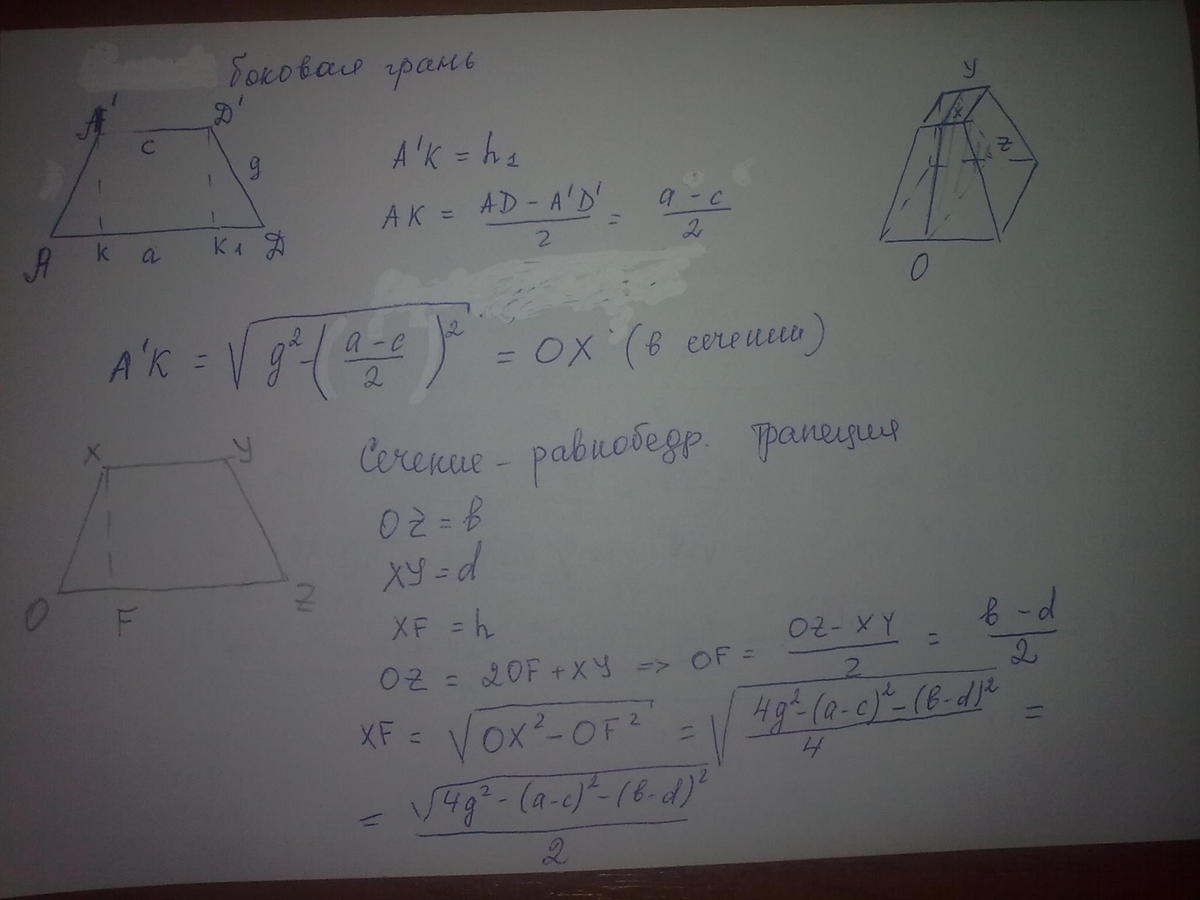 боковая грань
A' D'
c
g
A K a K1 D
A'K = h1
AK = (AD - A'D')/2 = (a - c)/2
y
x
z
O
A'K = √(g² - ((a - c)/2)²) = OX (в сечении)
X Y
O F Z
Сечение - равнобедр. трапеция
OZ = b
XY = d
XF = h
OZ = 2OF + XY => OF = (OZ - XY)/2 = (b - d)/2
XF = √(OX² - OF²) = √((4g² - (a-c)² - (b-d)²)/4) =
= √(4g² - (a-c)² - (b-d)²)/2